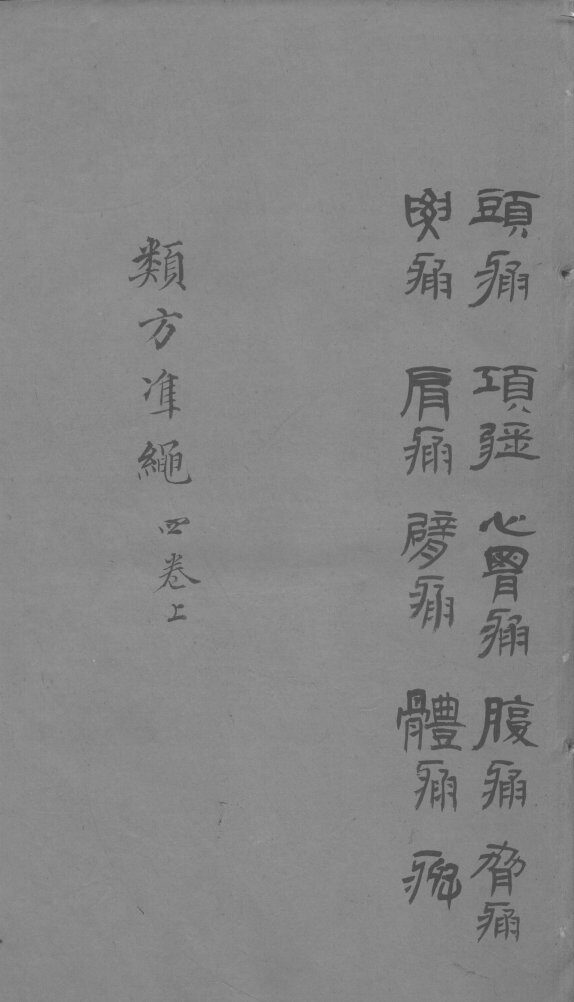 頭痛 項强 心胃痛 腹痛 脅痛
腰痛 肩痛 臂痛 體痛 痹
類方准繩 四卷上